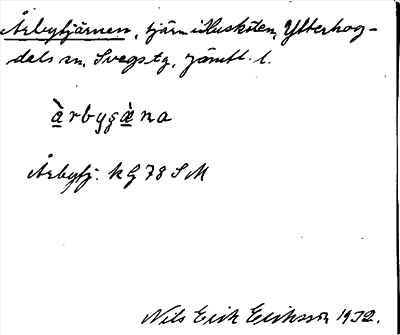 Årbytjärnen, tjärn i Huskölen, Ytterhog-
dals sn, Svegs tg, Jämtl. l.
àrbygæ̀na
Årbytj. kg 78 SM
Nils Erik Eriksson 1932.